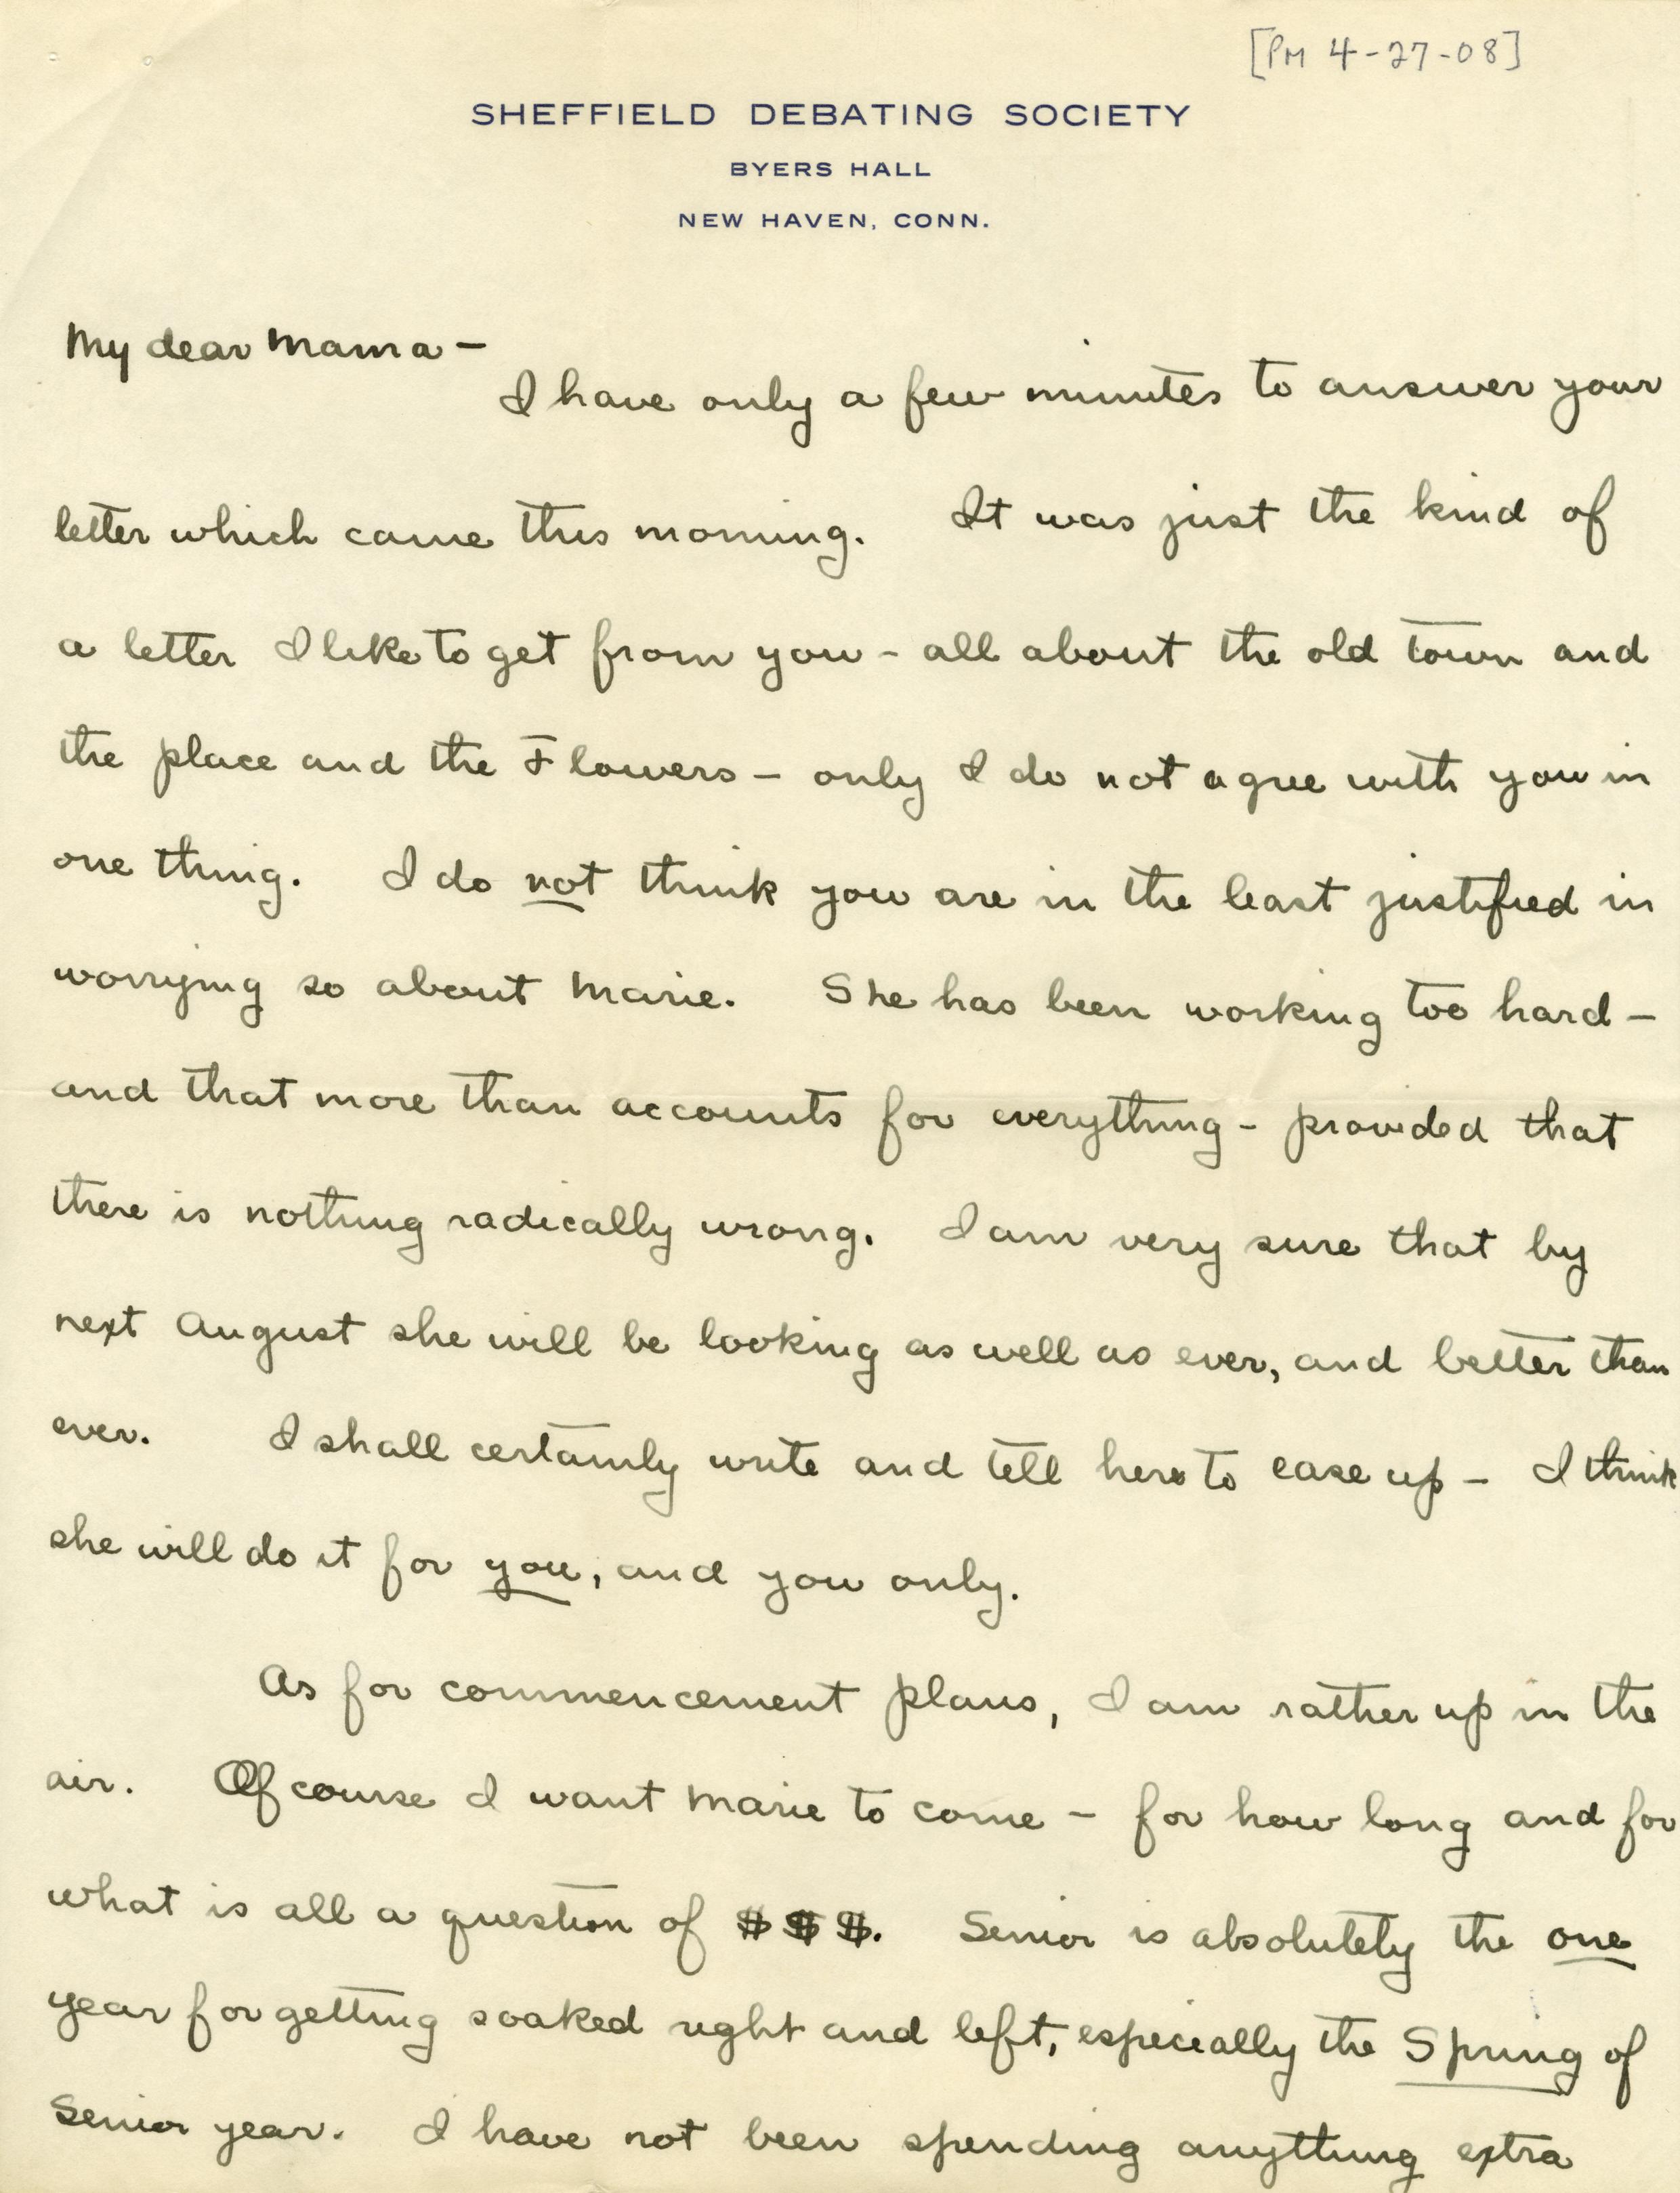 [PM 4-27-08]
SHEFFIELD DEBATING SOCIETY
BYERS HALL
NEW HAVEN, CONN.
My dear Mama –
I have only a few minutes to answer your
letter which came this morning. It was just the kind of
a letter I like to get from you – all about the old town and
the place and the Flowers – only I do not agree with you in
one thing. I do not think you are in the least justified in
worrying so about Marie. She has been working too hard –
and that more than accounts for everything – provided that
there is nothing radically wrong. I am very sure that by
next August she will be looking as well as ever, and better than
ever. I shall certainly write and tell her to ease up – I think
she will do it for you, and you only.
As for commencement plans, I am rather up in the
air. Of course I want Marie to come – for how long and for
what is all a question of $ $ $. Senior is absolutely the one
year for getting soaked right and left, especially the Spring of
Senior year. I have not been spending anything extra